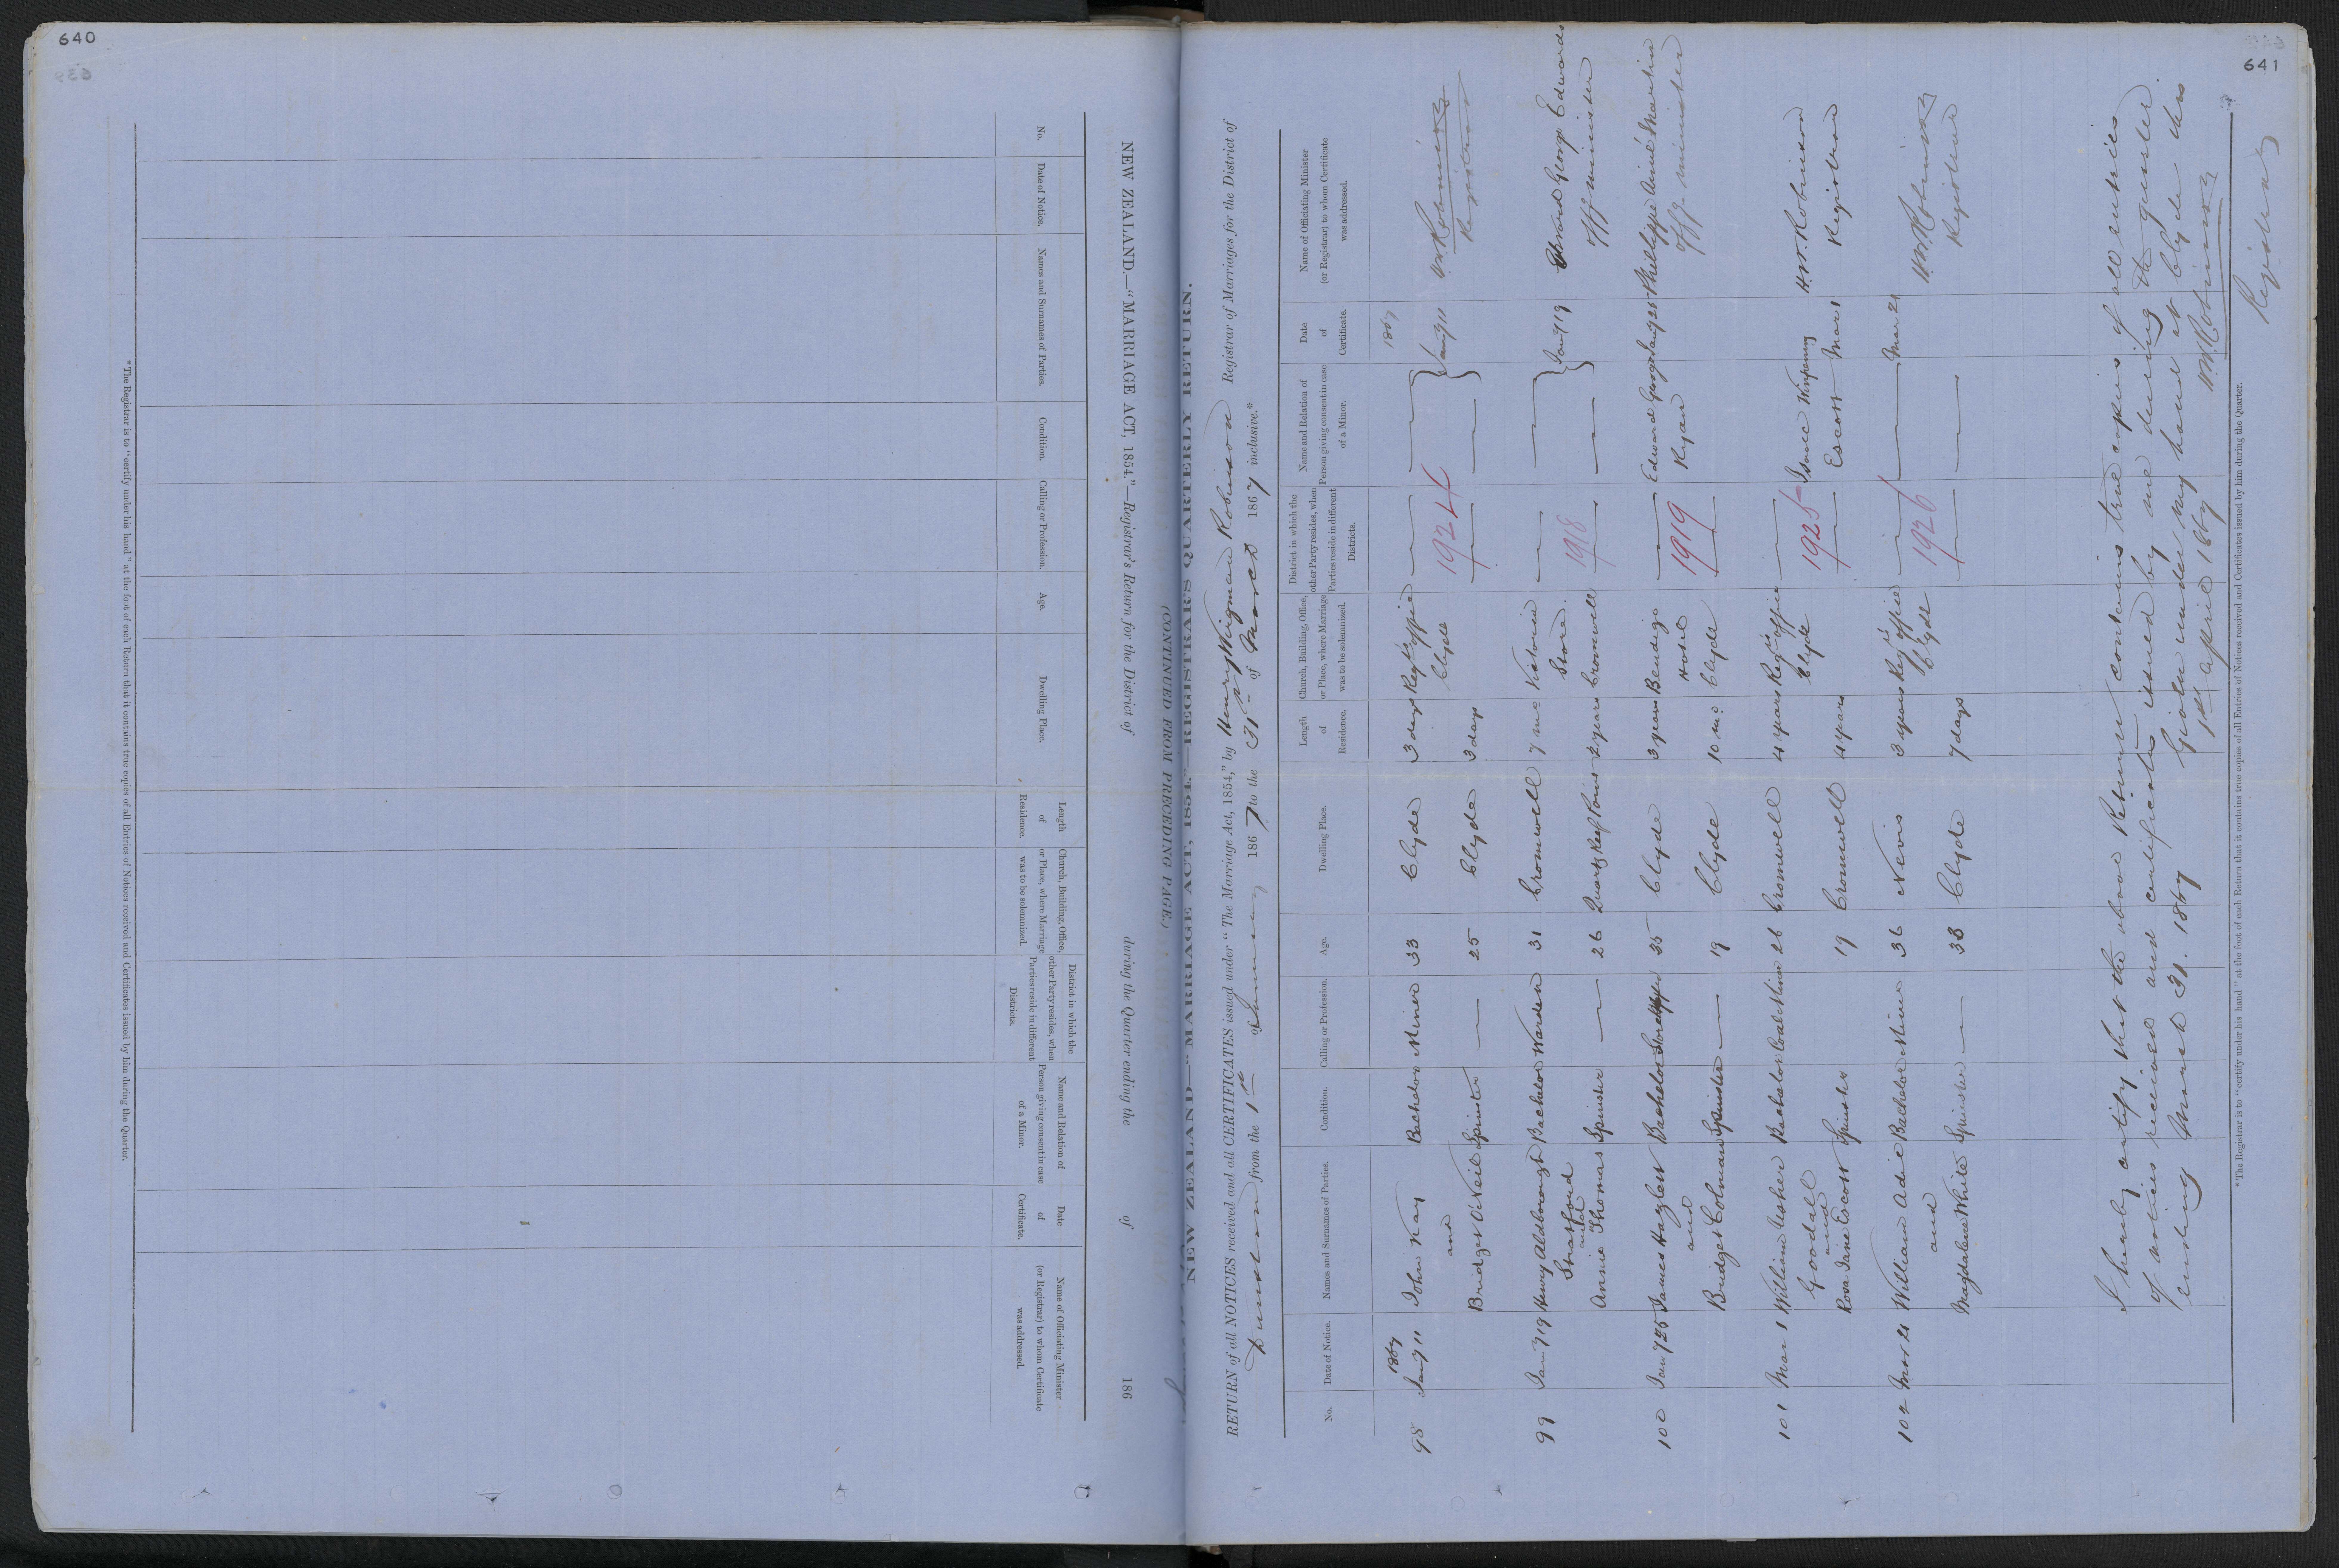 640
NEW ZEALAND.—"MARRIAGE ACT, 1854."—Registrar's Return for the District of during the Quarter ending the of 186
No.
Date of Notice.
Names and Surnames of Parties.
Condition.
Calling or Profession.
Age.
Dwelling Place.
Length of Residence.
Church, Building, Office, or Place, where Marriage was to be solemnized.
District in which the other Party resides, when Parties reside in different Districts.
Name and Relation of Person giving consent in case of a Minor.
Date of Certificate.
Name of Officiating Minister (or Registrar) to whom Certificate was addressed.
*The Registrar is to "certify under his hand" at the foot of each Return that it contains true copies of all Entries of Notices received and Certificates issued by him during the Quarter.
(CONTINUED FROM PRECEDING PAGE.)
641
NEW ZEALAND "MARRIAGE ACT, 1854."—REGISTRAR'S QUARTERLY RETURN.
RETURN of all NOTICES received and all CERTIFICATES issued under "The Marriage Act, 1854," by Henry Wirgman Robinson Registrar of Marriages for the District of
Dunstan from the 1st of January 1867 to the 31st of March 1867 inclusive.*
No.
Date of Notice.
Names and Surnames of Parties.
Condition.
Calling or Profession.
Age.
Dwelling Place.
Length of Residence.
Church, Building, Office, or Place, where Marriage was to be solemnized.
District in which the other Party resides, when Parties reside in different Districts.
Name and Relation of Person giving consent in case of a Minor.
Date of Certificate.
Name of Officiating Minister (or Registrar) to whom Certificate was addressed.
1867 1867
98 Jany 11 John Kay Bachelor Miner 33 Clyde 3 days Regr's office — — } Jany 11 H W Robinson
and Clyde 1924 Registrar
Bridget O'Neil Spinster — 25 Clyde 3 days — —
99 Jany 19 Henry Aldborough Bachelor Warden 31 Cromwell 7 mo Victoria — — } Jany 19 Edward George Edwards
Stratford Store 1918 Off minister
and
Annie Thomas Spinster — 26 Quartz Reef Point 2 years Cromwell — —
100 Jany 25 James Hazlett Bachelor Storekeeper 35 Clyde 3 years Bendigo — Edward George Jany 25 Phillippe Aimé Martin
and Hotel 1919 Ryan Offg minister
Bridget Colman Spinster — 19 Clyde 10 mo. Clyde —
101 Mar 1 William Usher Bachelor Coal Miner 26 Cromwell 4 years Regr's office — Isaac H. W. Robinson
Goodall Clyde 1925 Escott Mar 1 Registrar
and
Rosa Jane Escott Spinster 19 Cromwell 4 years —
102 Mar 21 William Adie Bachelor Miner 36 Nevis 3 years Regr's office — — Mar 21 H W. Robinson
and Clyde 1926 Registrar
Magdalene White Spinster — 33 Clyde 7 days — —
I hereby certify that the above Return contains true copies of all entries
of notices received and certificates issued by me during the quarter
ending March 31. 1867 Given under my hand at Clyde this
1st April 1867 H W. Robinson
Registrar
*The Registrar is to "certify under his hand" at the foot of each Return that it contains true copies of all Entries of Notices received and Certificates issued by him during the Quarter.